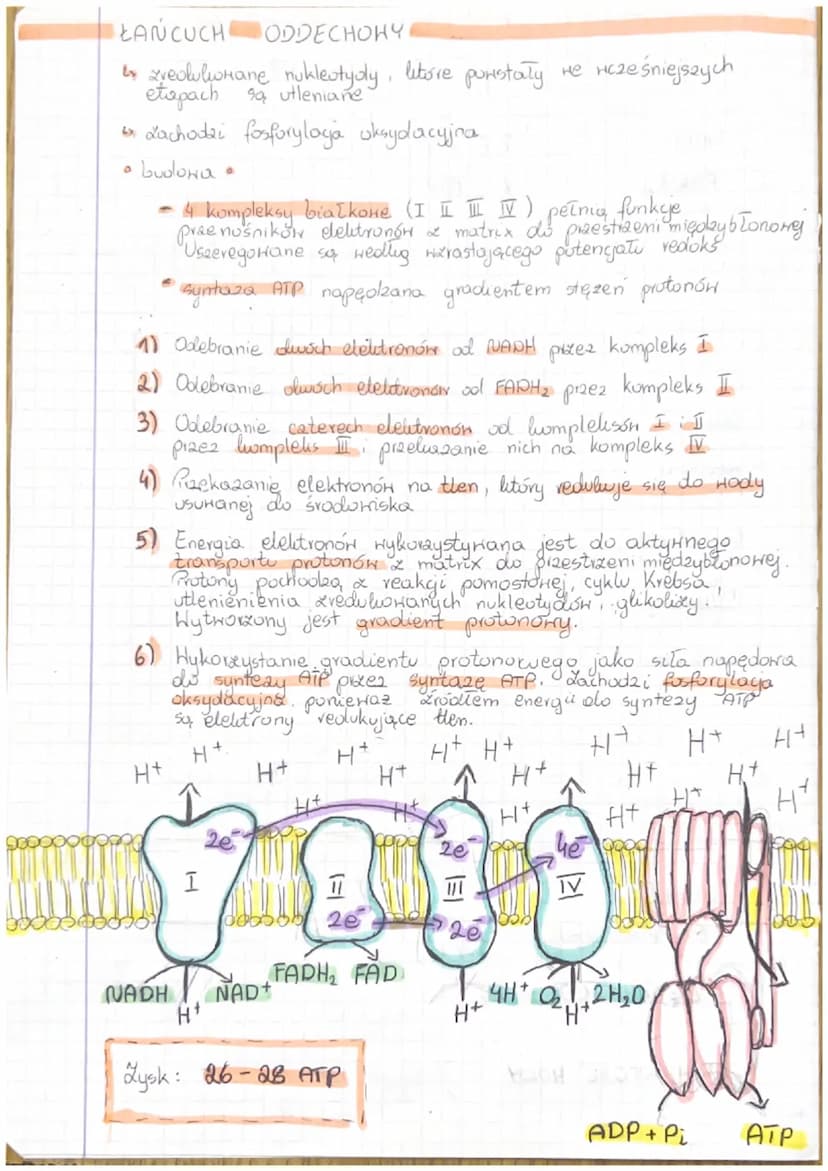 ŁAŃCUCH ODDECHOWY
↳ zredukowane nukleotydy, które powstały we wcześniejszych
etapach są utleniane
↳ zachodzi fosforylacja oksydacyjna
• budowa •
- 4 kompleksy białkowe (I II III IV) pełnią funkcje
przenośników elektronów z matrix do przestrzeni międzybłonowej
Uszeregowane są według wzrastającego potencjału redoks
• syntaza ATP napędzana gradientem stężeń protonów
1) Odebranie dwóch elektronów od NADH przez kompleks I
2) Odebranie dwóch elektronów od FADH₂ przez kompleks II
3) Odebranie czterech elektronów od kompleksów I i II
przez kompleks III i przekazanie nich na kompleks IV
4) Przekazanie elektronów na tlen, który redukuje się do wody
usuwanej do środowiska
5) Energia elektronów wykorzystywana jest do aktywnego
transportu protonów z matrix do przestrzeni międzybłonowej.
Protony pochodzą z reakcji pomostowej, cyklu Krebsa,
utlenienienia zredukowanych nukleotydów, glikolizy.
Wytworzony jest gradient protonowy.
6) Wykorzystanie gradientu protonowego jako siła napędowa
do syntezy ATP przez syntazę ATP. Zachodzi fosforylacja
oksydacyjna, ponieważ źródłem energii do syntezy ATP
są elektrony redukujące tlen.
H⁺ H⁺ H⁺ H⁺ H⁺ H⁺ H⁺
H⁺ H⁺ H⁺ H⁺ H⁺ H⁺
H⁺ H⁺ H⁺ H⁺ H⁺ H⁺
2e⁻ 2e⁻ 4e⁻
I II III IV
2e⁻ 2e⁻
NADH NAD⁺ FADH₂ FAD 4H⁺ O₂ 2H₂O
H⁺ H⁺ H⁺
Zysk: 26-28 ATP
ADP + Pi ATP